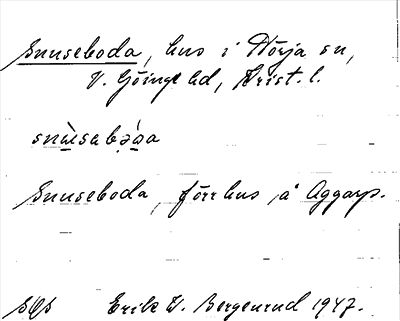 Snuseboda, hus i Nörja sn,
V. Göinge hd, Krist. l.
snùsabo̯òa
Snuseboda, förr hus å Aggarp.
sOs Erik W. Bergenrud 1947.